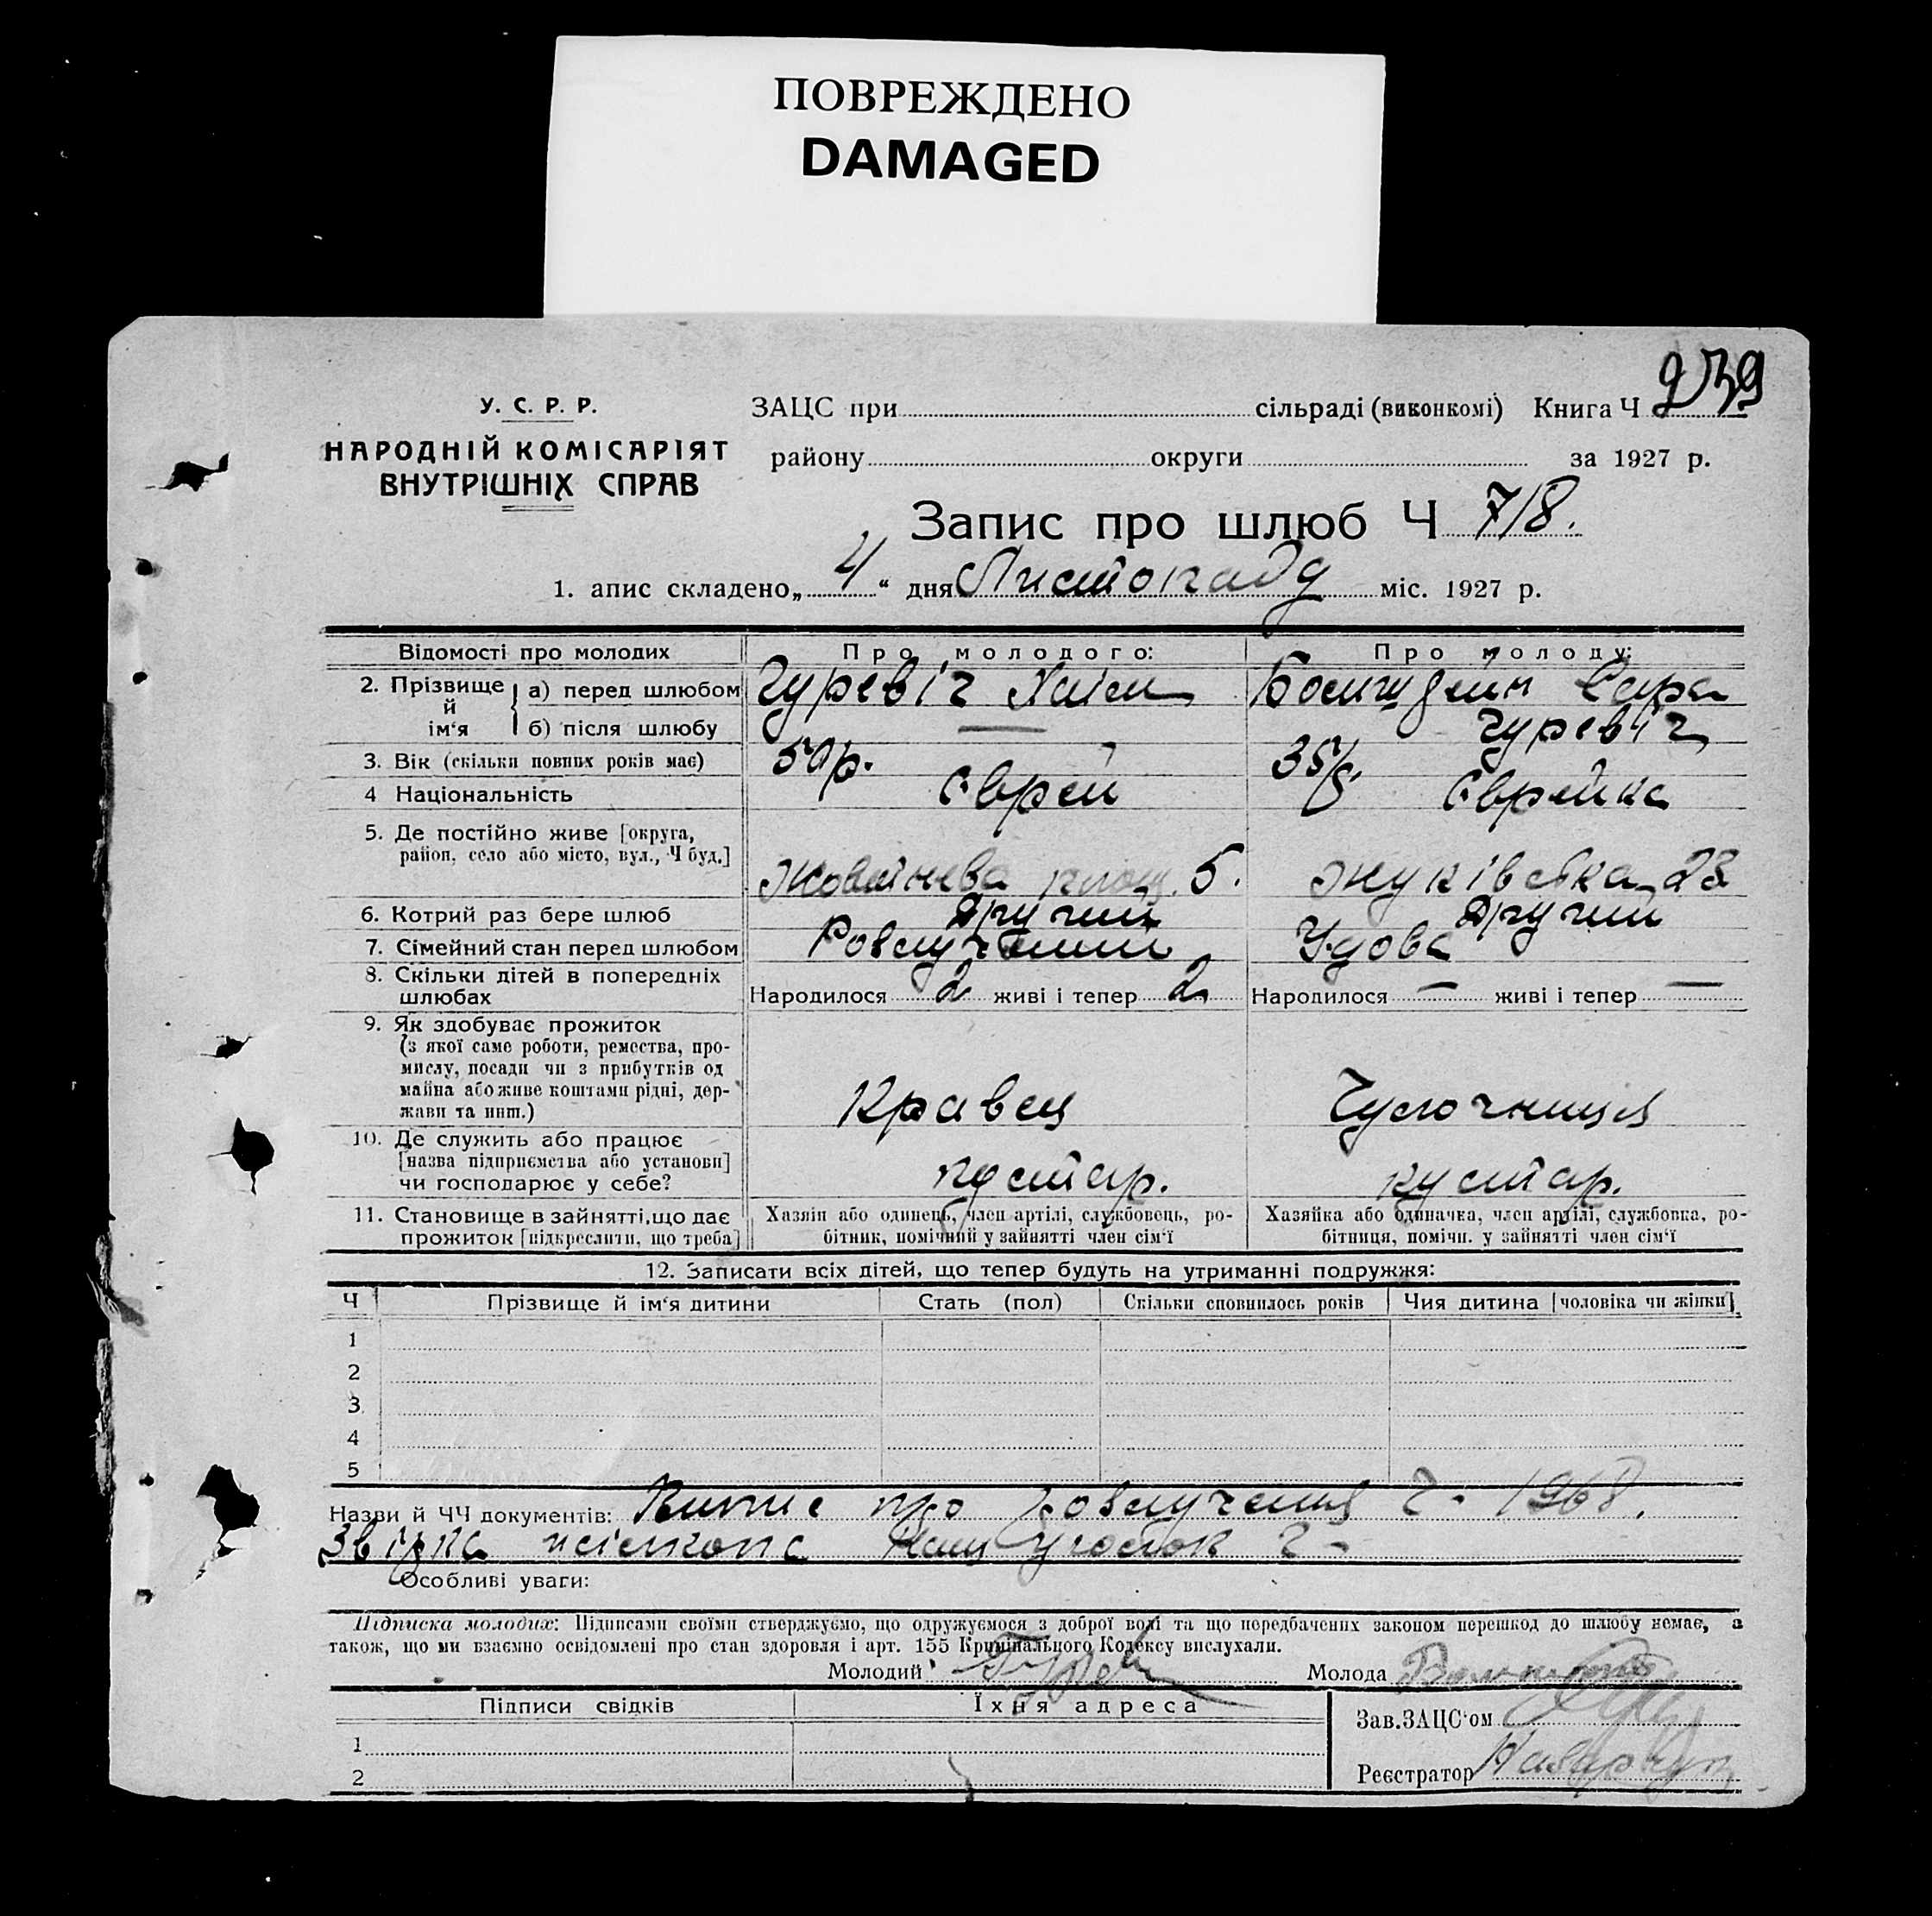 ПОВРЕЖДЕНО
DAMAGED
У. С. Р. Р.
НАРОДНІЙ КОМІСАРІЯТ
ВНУТРІШНІХ СПРАВ
ЗАЦС при сільраді (виконкомі) Книга Ч
району округи за 1927 р.
Запис про шлюб Ч 718.
1. апис складено „4“ дня Листопада міс. 1927 р.
Відомості про молодих Про молодого: Про молоду:
2. Прізвище й ім'я а) перед шлюбом Гуревіч Хаім Сара
б) після шлюбу — Гуревіч
3. Вік (скільки повних років має) 50 р. 35 р.
4 Національність Єврей Єврейка
5. Де постійно живе [округа,
район, село або місто, вул., Ч буд.] Жовтнева площ. 5. 23
6. Котрий раз бере шлюб Другий Другий
7. Сімейний стан перед шлюбом Розлучений Удова
8. Скільки дітей в попередніх
шлюбах Народилося 2 живі і тепер 2 Народилося — живі і тепер —
9. Як здобуває прожиток
(з якої саме роботи, ремества, про-
мислу, посади чи з прибутків од
майна або живе коштами рідні, дер-
жави та инш.) Кравец
10. Де служить або працює
[назва підприємства або установи]
чи господарює у себе? кустар. кустар.
11. Становище в зайнятті, що дає
прожиток [підкреслити, що треба]
Хазяїн або одинець, член артілі, службовець, ро-
бітник, помічний у зайнятті член сім'ї
Хазяйка або одиначка, член артілі, службовка, ро-
бітниця, помічн. у зайнятті член сім'ї
12. Записати всіх дітей, що тепер будуть на утриманні подружжя:
Ч Прізвище й ім'я дитини Стать (пол) Скільки сповнилось років Чия дитина [чоловіка чи жінки]
1
2
3
4
5
Назви й ЧЧ документів: Випис про розлучення Ч. 1968.
Звідка
Особливі уваги:
Підписка молодих: Підписами своїми стверджуємо, що одружуємося з доброї волі та що передбачених законом перешкод до шлюбу немає, а
також, що ми взаємно освідомлені про стан здоровля і арт. 155 Кримінального Кодексу вислухали.
Молодий Молода
Підписи свідків Їхня адреса
1
2
Зав. ЗАЦС'ом
Реєстратор